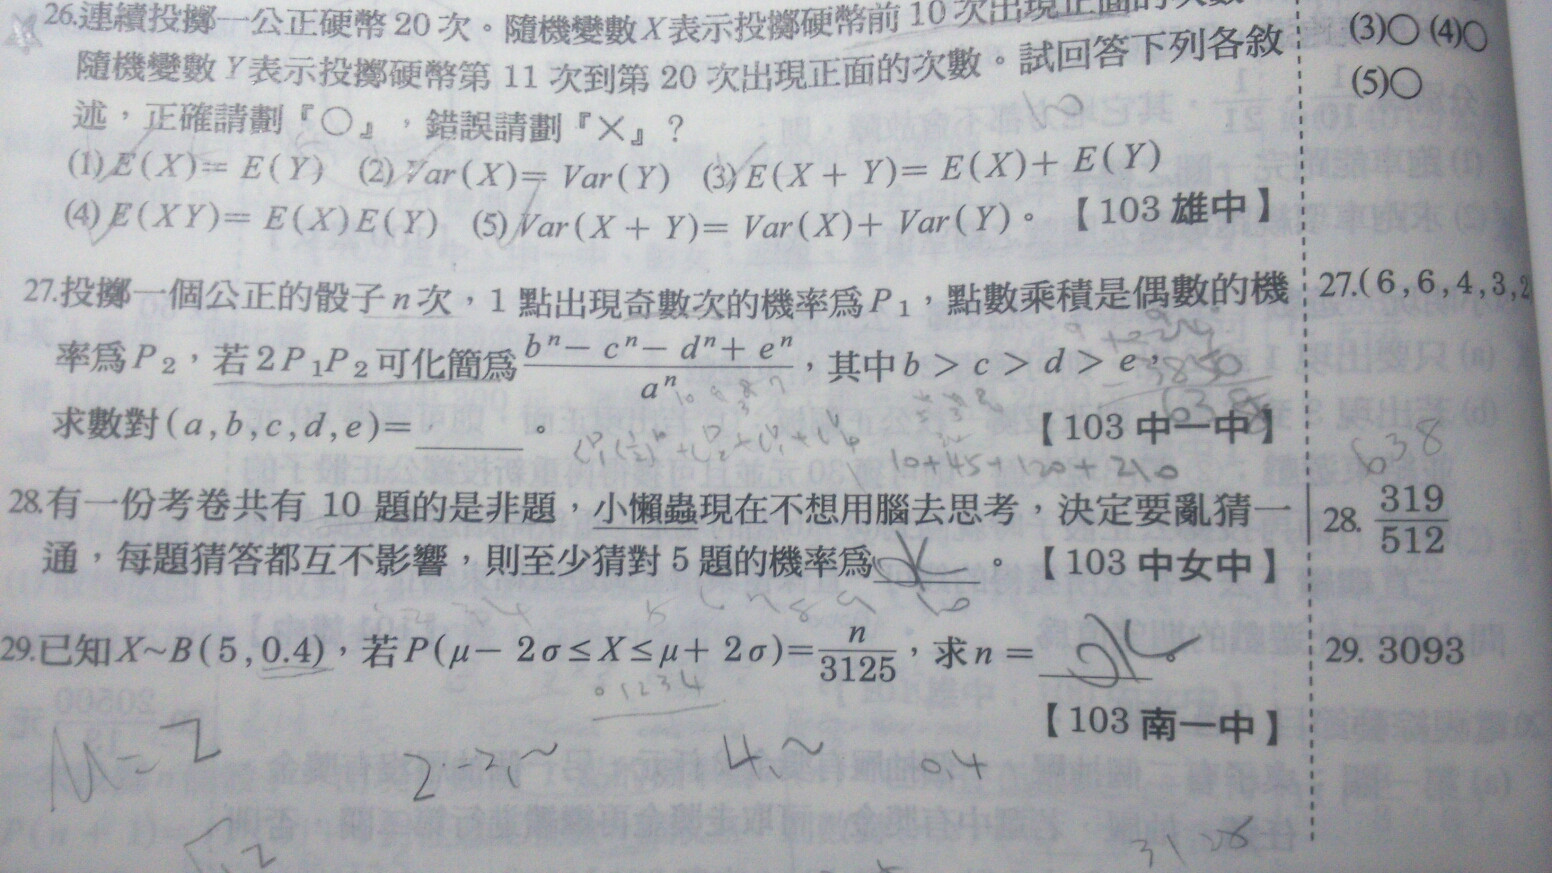 26.連續投擲一公正硬幣20次。隨機變數X表示投擲硬幣前10次出現正面的次數
隨機變數Y表示投擲硬幣第11次到第20次出現正面的次數。試回答下列各敘
述，正確請劃『○』，錯誤請劃『×』？
(1) E(X)= E(Y) (2) Var(X)= Var(Y) (3) E(X + Y)= E(X)+ E(Y)
(4) E(XY)= E(X)E(Y) (5) Var(X + Y)= Var(X)+ Var(Y)。【103雄中】
(3)○ (4)○
(5)○
27.投擲一個公正的骰子n次，1點出現奇數次的機率為P₁，點數乘積是偶數的機
率為P₂，若2P₁P₂可化簡為 (bⁿ − cⁿ − dⁿ + eⁿ)/aⁿ，其中b > c > d > e，
求數對(a,b,c,d,e)=______。【103中一中】
27.(6,6,4,3,2
10+45+120+210
638
28.有一份考卷共有10題的是非題，小懶蟲現在不想用腦去思考，決定要亂猜一
通，每題猜答都互不影響，則至少猜對5題的機率為______。【103中女中】
28. 319/512
29.已知X~B(5,0.4)，若P(μ− 2σ≤X≤μ+ 2σ)= n/3125，求n =______。
01234
【103南一中】
29. 3093
M=2
0.4